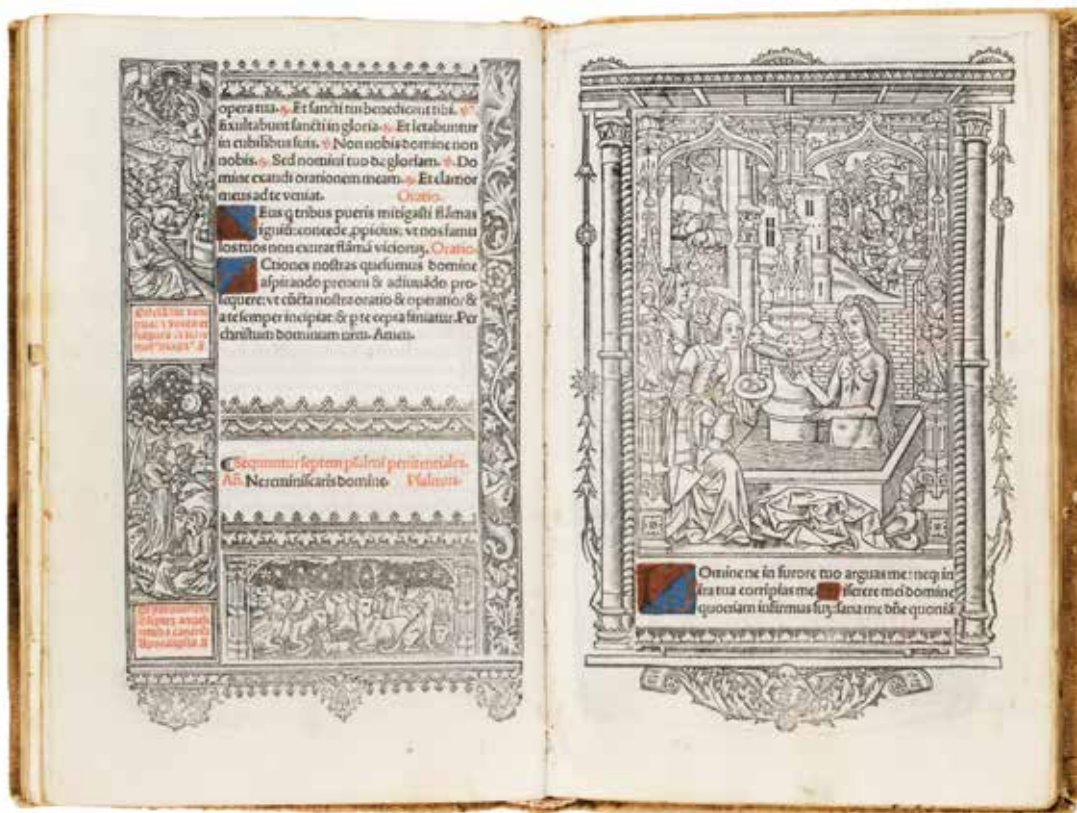 opera tua. ℟. Et sancti tui benedicant tibi. ℣.
Exultabunt sancti in gloria. ℟. Et letabuntur
in cubilibus suis. ℣. Non nobis domine non
nobis. ℟. Sed nomini tuo da gloriam. ℣. Do
mine exaudi orationem meam. ℟. Et clamor
meus ad te veniat. Oratio.
Eus q tribus pueris mitigasti flāmas
igniū: concede ꝓpicius: vt nos famu
los tuos non exurat flāmā vicioruꝫ. Oratio.
Ctiones nostras quesumus domine
aspirando preueni & adiuuādo pro
sequere: vt cūcta nostra oratio & operatio/ &
a te semper incipiat: & p te cepta finiatur. Per
christum dominum nrm. Amen.
¶ Sequuntur septem psalmi penitentiales.
Añ. Ne reminiscaris domine. Psalmus.
Apocalipsis
Omine ne in furore tuo arguas me: neqꝫ in
ira tua corripias me. iserere mei domine
quoniam infirmus suꝫ: sana me dñe quoniā